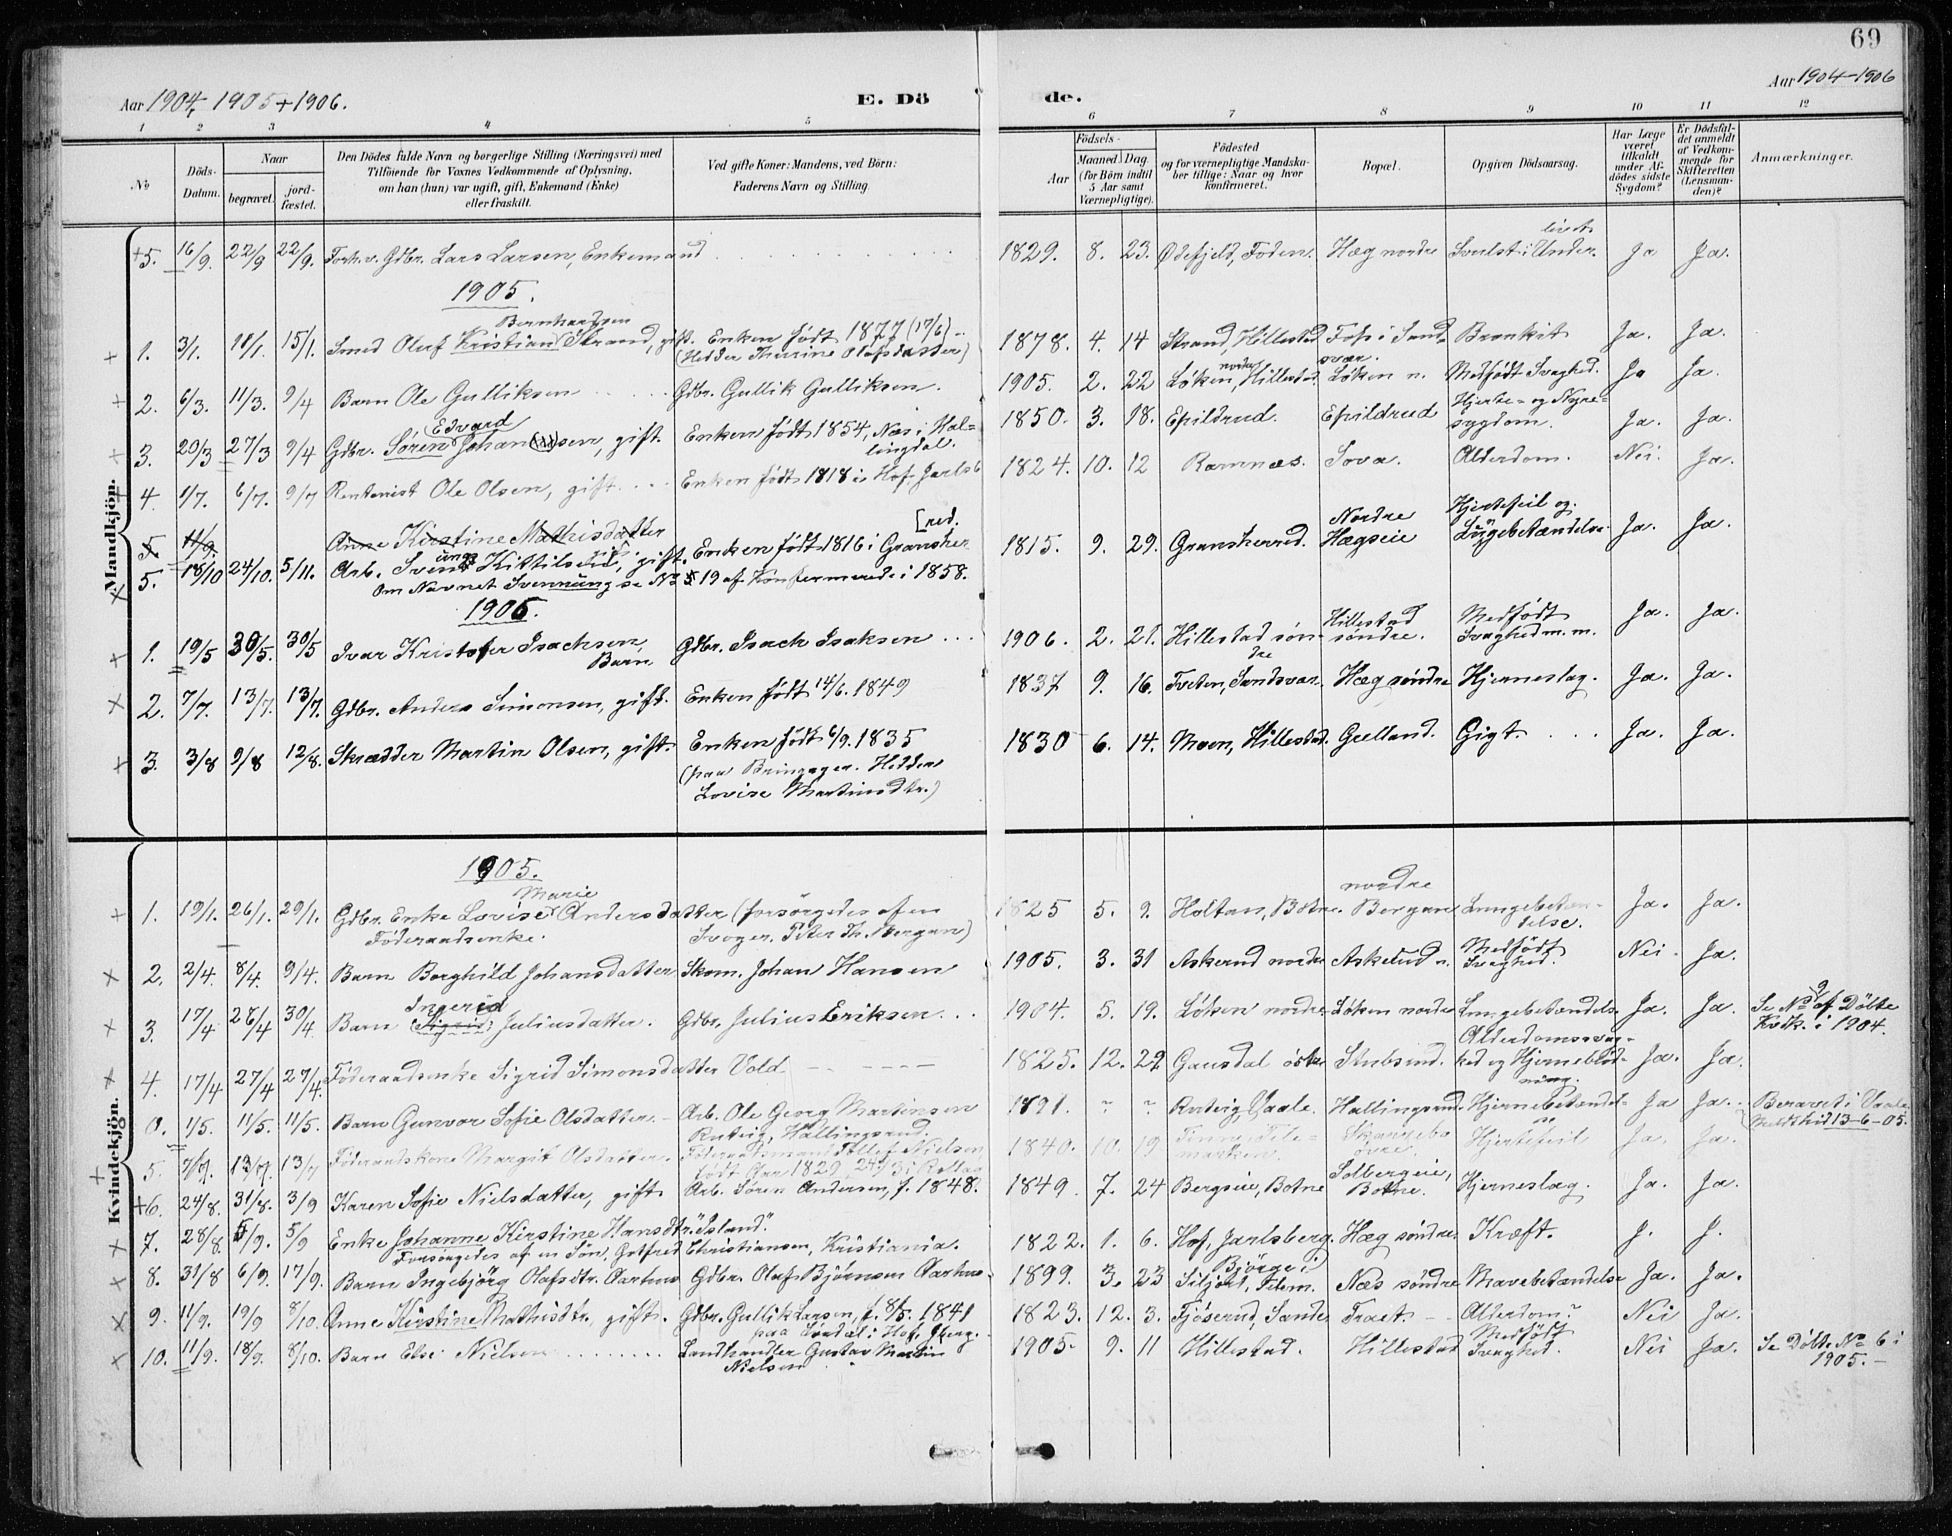 69
Aar 1904, 1905 + 1906. E. Dö
de. Aar 1904-1906
1 2 3 4 5 6 7 8 9 10 11 12
No
Döds-Datum.
Naar
begravet.
jord-fæstet.
Den Dödes fulde Navn og borgerlige Stilling (Næringsvei) med
Tilföiende for Voxnes Vedkommende af Oplysning,
om han (hun) var ugift, gift, Enkemand (Enke)
eller fraskilt.
Ved gifte Koner: Mandens, ved Börn:
Faderens Navn og Stilling.
Födsels-
Aar
Maaned Dag
(for Börn indtil
5 Aar samt
Værnepligtige).
Födested
og for værnepligtige Mandska-
ber tillige: Naar og hvor
konfirmeret.
Bopæl.
Opgiven Dödsaarsag.
Har Læge
været
tilkaldt
under Af-
dödes sidste
Sygdom?
Er Dödsfal-
det anmeldt
af Vedkom-
mende for
Skifteretten
(Lensman-
den)?
Anmærkninger.
Mandkjön.
+5. 16/9. 22/9 22/9. Forh.v. Gdbr. Lars Larsen, Enkemand 1829. 8. 23. Ødefjeld, Foden. Hæg nordre Svulst i Under-livet Ja Ja.
1905.
+ 1. 3/1. 11/1. 15/1. Smed Oluf Kristian Bernhardsen Strand, gift. Enken født 1877 (17/6) 1878. 4. 14 Strand, Hillestad Fos i Sand- Bronkit Ja. Ja.
(Hedder Thurine Olafsdatter) svær.
+ 2. 6/3. 11/3. 9/4 Barn Ole Gulliksen Gdbr. Gullik Gulliksen. 1905. 2. 22 Løken nordre, Hillestad. Løken n. Medfödt Svaghed. Ja Ja.
+ 3. 20/3 27/3 9/4 Gdbr. Søren Edvard Johansen, gift. Enken født 1854, Næs i Hal-
lingdal. 1850. 3. 18. Epildrud. Epildrud Hjerte- og Nyre-
sygdom. Ja. Ja.
+ 4. 1/7. 6/7. 9/7 Rentenist Ole Olsen, gift. Enken født 1818 i Hof, Jarlsb 1824. 10. 12 Ramnæs. Sova. Alderdom. Nei. Ja.
5 11/9. Anne Kirstine Mathisdatter
5. 18/10 24/10. 5/11. Arb. Svenung Kittilsen, gift. Enken født 1816 i Gransher-
[red. 1815. 9. 29. Gransherred. Nordre
Hægseie Hjertefeil og
Lungebetændelse. Ja. Ja.
Om Navnet Svennung se No 19 af Konfirmerede i 1858.
1906.
+ 1. 19/5 30/5. 30/5 Ivar Kristofer Isachsen,
Barn Gdbr. Isach Isaksen 1906. 2. 21. Hillestad søn-
dre Hillestad
søndre. Medfödt
Svaghed m.m. Ja. Ja.
+ 2. 7/7. 13/7. 13/7. Gdbr. Anders Simonsen, gift. Enken født 14/6. 1849 1837 9. 16. Tveten, Sandsvær. Hæg søndre Hjerneslag. Ja. Ja.
+ 3. 3/8 9/8 12/8. Skrædder Martin Olsen, gift. Enken født 6/9. 1835
(paa Bringager. Hedder
Lovise Martinsdtr.) 1830 6. 14. Moen, Hillestad. Grelland. Gigt. Ja. Ja.
Kvindekjön.
1905.
+ 1. 19/1. 26/1. 29/1. Gdbr. Enke Lovise Marie Andersdatter (forsørgedes af en
Föderaadsenke. Svoger, Peter Th. Bergan) 1825 5. 9. Holtan, Botne. nordre
Bergan Lungebetæn-
delse. Ja. Ja.
+ 2. 2/4. 8/4. 9/4. Barn Borghild Johansdatter Skom. Johan Hansen 1905. 3. 31 Askerud nordre Askerud n. Medfödt
Svaghed. Nei. Ja.
+ 3. 17/4 28/4 30/4. Barn (Sigrid) Ingerid Juliusdatter. Gdbr. Julius Eriksen 1904. 5. 19. Løken nordre Løken nordre Lungebetændelse Ja. Ja. Se No 9 af Döbte
Kvk. i 1904.
+ 4. 17/4 27/4 27/4. Föderaadsenke Sigrid Simonsdatter Vold 1825. 12. 29. Gausdal östre Stubsrud. Alderdomssvag-
hed og Hjerneblöd-
ning. Ja. Ja.
0. 1/5. 11/5. 11/5. Barn Gunvor Sofie Olsdatter Arb. Ole Georg Martinsen
Rutvig, Hallingsrud. 1891. " " Rutvig, Vaale. Hallingsrud. Hjernebetændel-
se Ja Ja. Beravet i Vaale
Meldt hid 13-6-05.
+ 5. 7/7. 13/7. 13/7 Föderaadskone Margit Olsdatter. Föderaadsmand Tollef Nielsen,
født Aar 1829 24/3 i Rollag 1840. 10. 19 Tinne, Tele-
marken. Skaugebo
övre. Hjertefeil Ja. Ja.
+6. 24/8. 31/8. 3/9 Karen Sofie Nielsdatter, gift Arb. Søren Andersen, f. 1848. 1849. 7. 24 Bergseie, Botne Solbergeie,
Botne. Hjerneslag. Ja. Ja.
+ 7. 28/8. 5/9. 5/9 Enke Johanne Kirstine Hansdtr. "Island".
Forsørgedes af en Søn, Gotfred Christiansen, Kristiania. 1822. 1. 6. Hof, Jarlsberg. Hæg søndre Kræft. J. J.
+ 8. 31/8 6/9. 17/9. Barn Ingebjörg Olafsdtr. Aarhus Gdbr. Oluf Bjørnsen Aarhus. 1899. 3. 23 Bjørge i
Siljord, Telem. Næs søndre Mavebetændelse Ja. Ja.
+ 9. 11/9. 19/9 8/10. Anne Kirstine Mathisdtr., gift. Gdbr. Gullik Larsen, f. 8/5. 1841
paa i Hof, Jberg. 1823. 12. 3. Fjøserud, Sande Traet Alderdom? Nei Ja.
+ 10. 11/9. 18/9. 8/10. Barn Else Nielsen Landhandler Gustav Martin
Nielsen 1905. 9. 11 Hillestad. Hillestad Medfödt
Svaghed. Nei Ja. Se Döbte No 6 i
1905.-